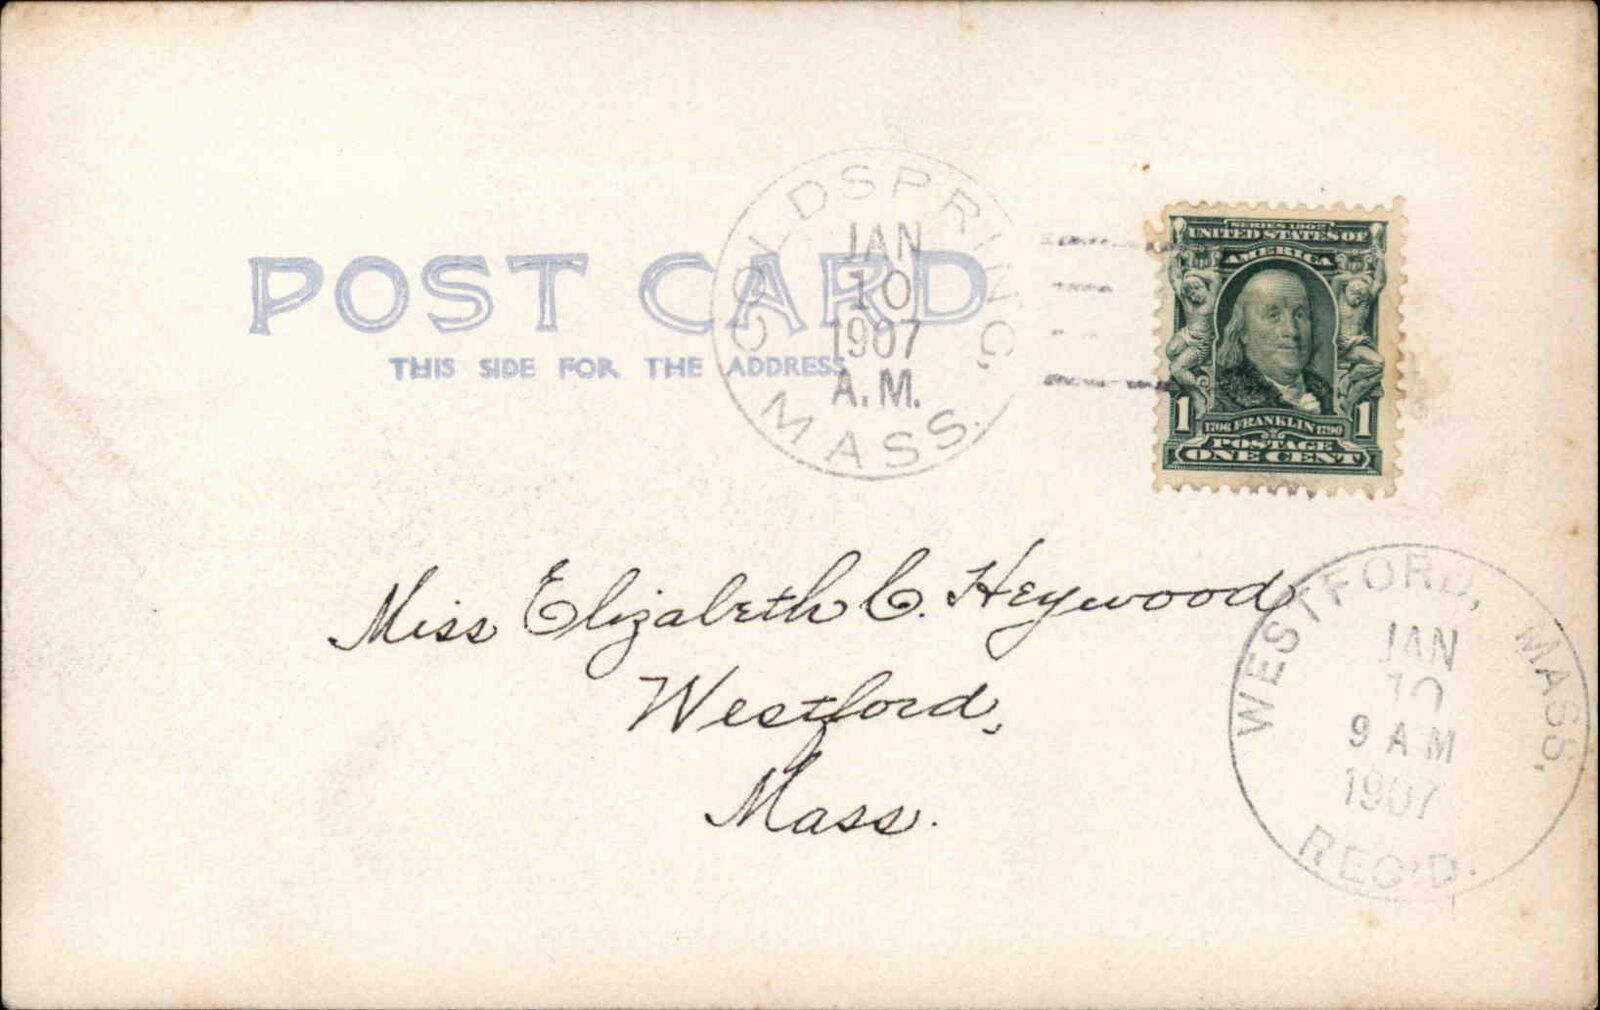 POST CARD
THIS SIDE FOR THE ADDRESS
COLDSPRING, MASS.
JAN
10
1907
A.M.
SERIES 1902
UNITED STATES OF
AMERICA
1 1706 FRANKLIN 1790 1
POSTAGE
ONE CENT
Miss Elizabeth C. Heywood
Westford,
Mass.
WESTFORD, MASS.
JAN
10
9 AM
1907
REC'D.